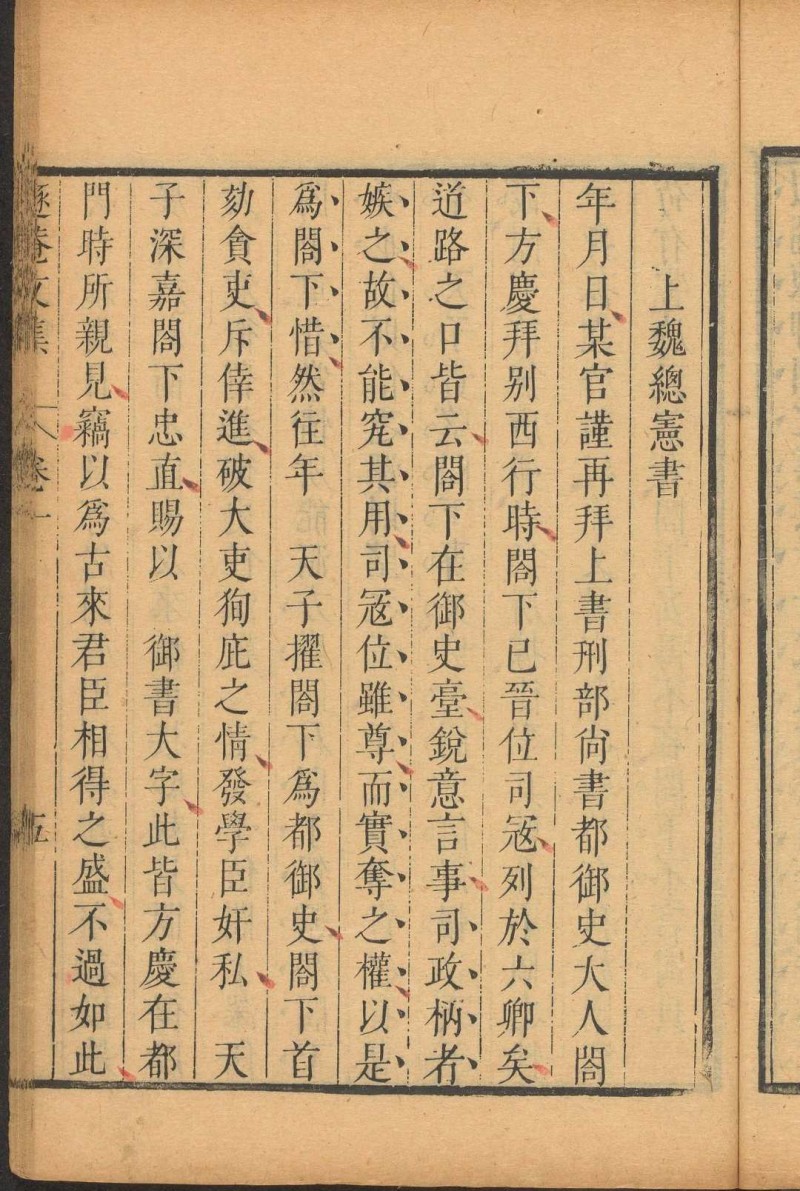 上魏總憲書
年月日某官謹再拜上書刑部尙書都御史大人閤
下方慶拜别西行時閤下已晉位司宼列於六卿矣
道路之口皆云閤下在御史臺銳意言事司政柄者
嫉之故不能究其用司宼位雖尊而實奪之權以是
爲閤下惜然往年　天子擢閤下爲都御史閤下首
劾貪吏斥倖進破大吏狥庇之情發學臣奸私　天
子深嘉閤下忠直賜以　御書大字此皆方慶在都
門時所親見竊以爲古來君臣相得之盛不過如此
文集　卷一　五